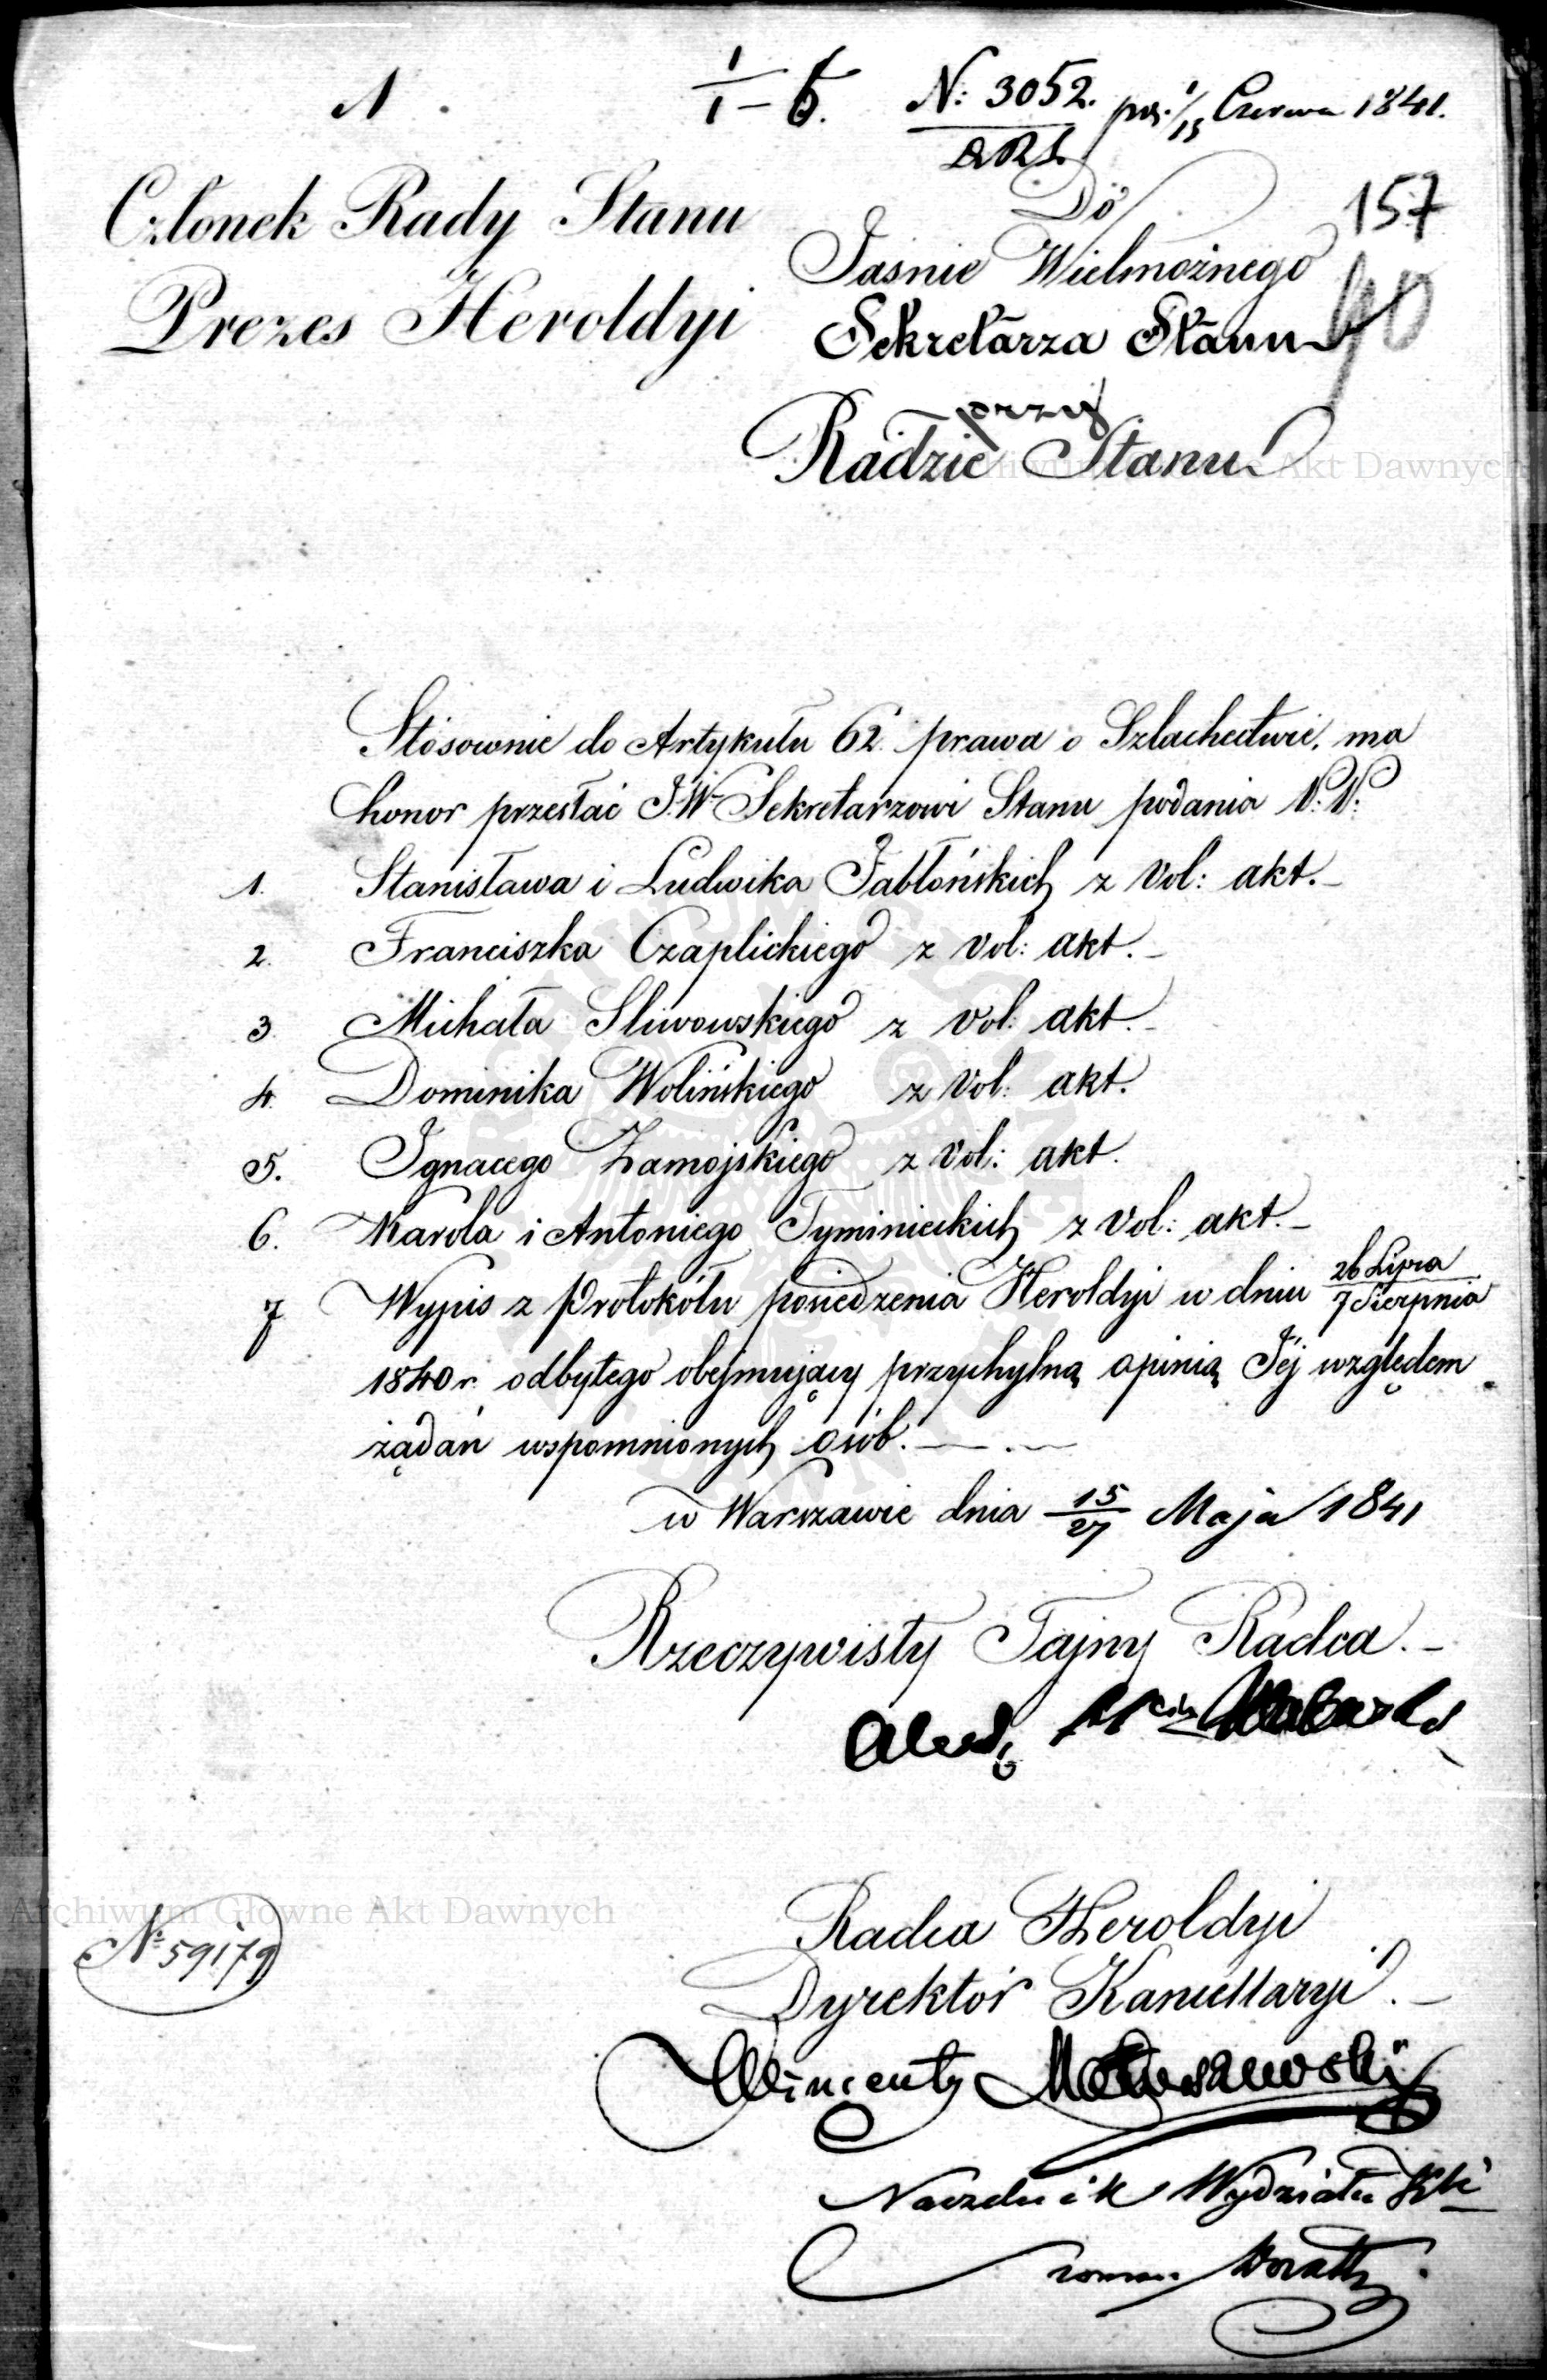 1.
1/1 – 6.
N: 3052.
1/13 Czerwca 1841.
157
40
Członek Rady Stanu
Prezes Heroldyi
Do
Jaśnie Wielmożnego
Sekretarza Stanu
przy
Radzie Stanu
Stósownie do Artykułu 62. prawa o Szlachectwie, ma
honor przesłać J.W. Sekretarzowi Stanu podania N: N:
1. Stanisława i Ludwika Jabłońskich z vol: akt. –
2. Franciszka Czaplickiego z vol: akt. –
3. Michała Sliwowskiego z vol: akt. –
4. Dominika Wolińskiego z vol: akt.
5. Ignacego Zamojskiego z vol: akt.
6. Karola i Antoniego Tyminieckich z vol: akt. –
7 Wypis z Protokółu posiedzenia Heroldyi w dniu 26 Lipca / 7 Sierpnia
1840 r. odbytego obejmujący przychylną opinią Jéj względem
żądań wspomnionych osób. –
w Warszawie dnia 15/27 Maja 1841
Rzeczywisty Tajny Radca. –
Radca Heroldyi
Dyrektor Kancellaryi. –
Wincenty Matuszewski
Naczelnik Wydziału
Nº 59179
Archiwum Główne Akt Dawnych
Akt Dawnych